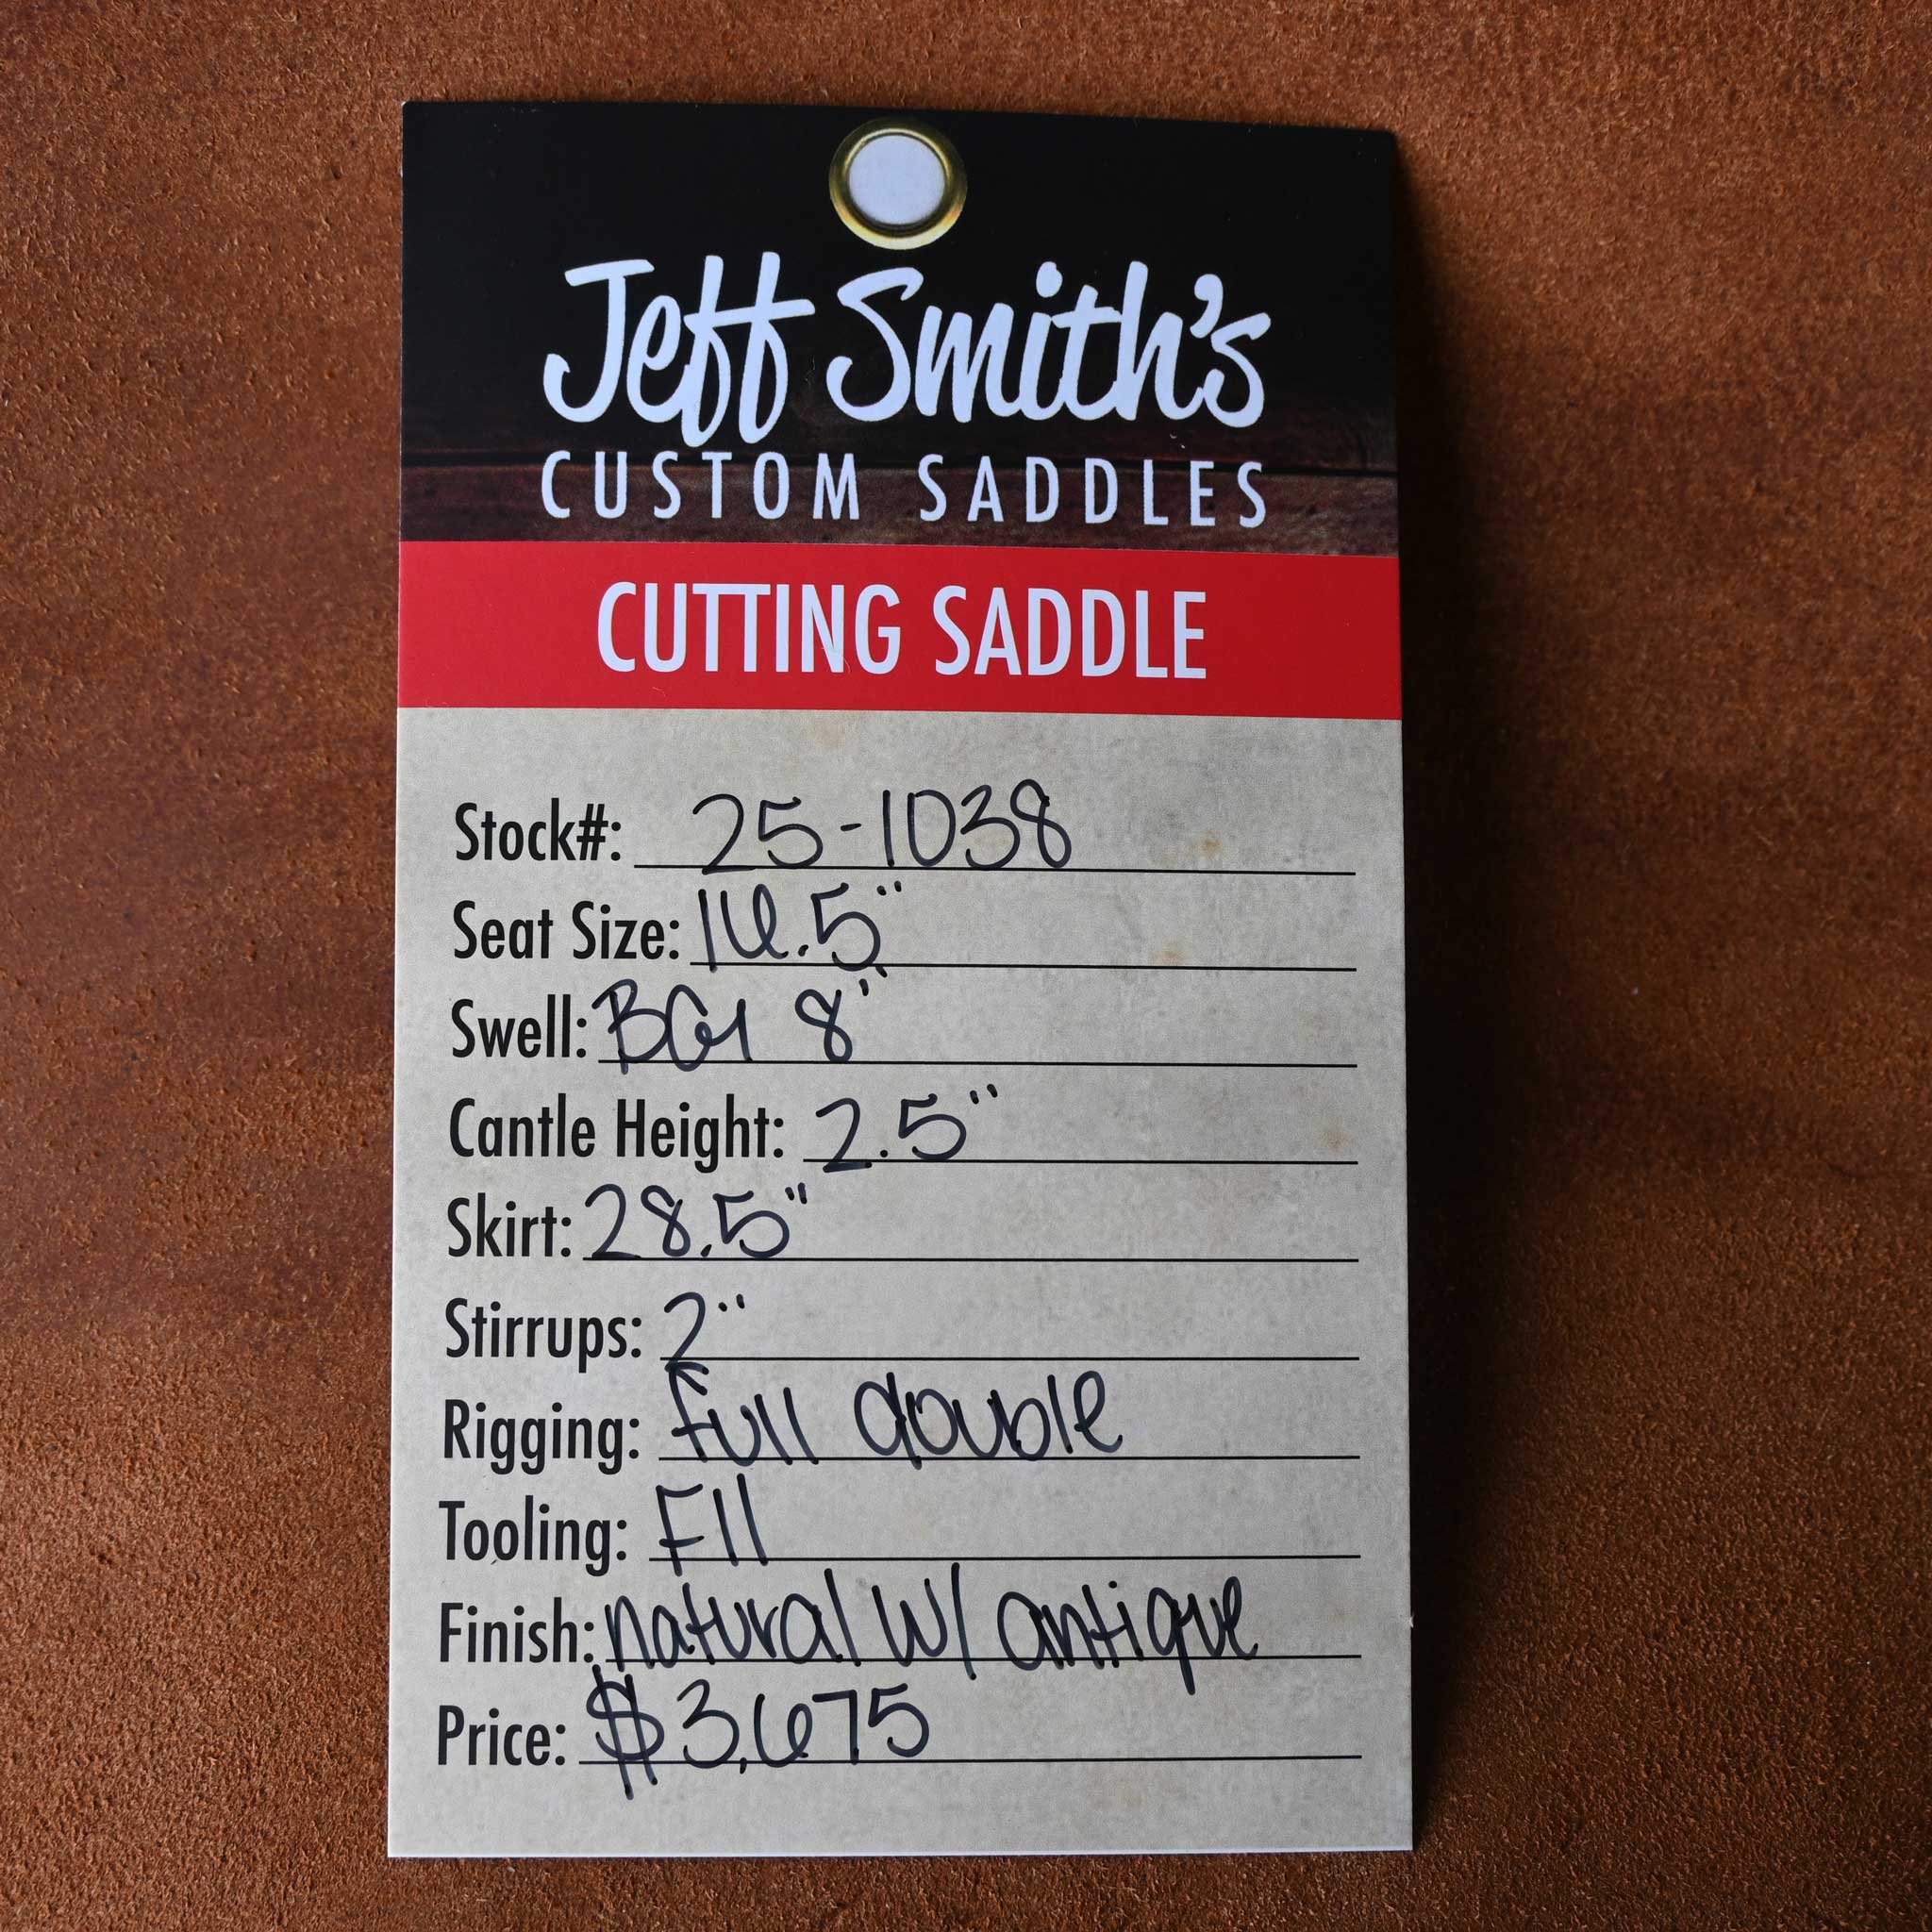 Jeff Smith's
CUSTOM SADDLES
CUTTING SADDLE
Stock#: 25-1038
Seat Size: 16.5"
Swell: BG1 8"
Cantle Height: 2.5"
Skirt: 28.5"
Stirrups: 2"
Rigging: full double
Tooling: F11
Finish: natural w/ antique
Price: $3,675